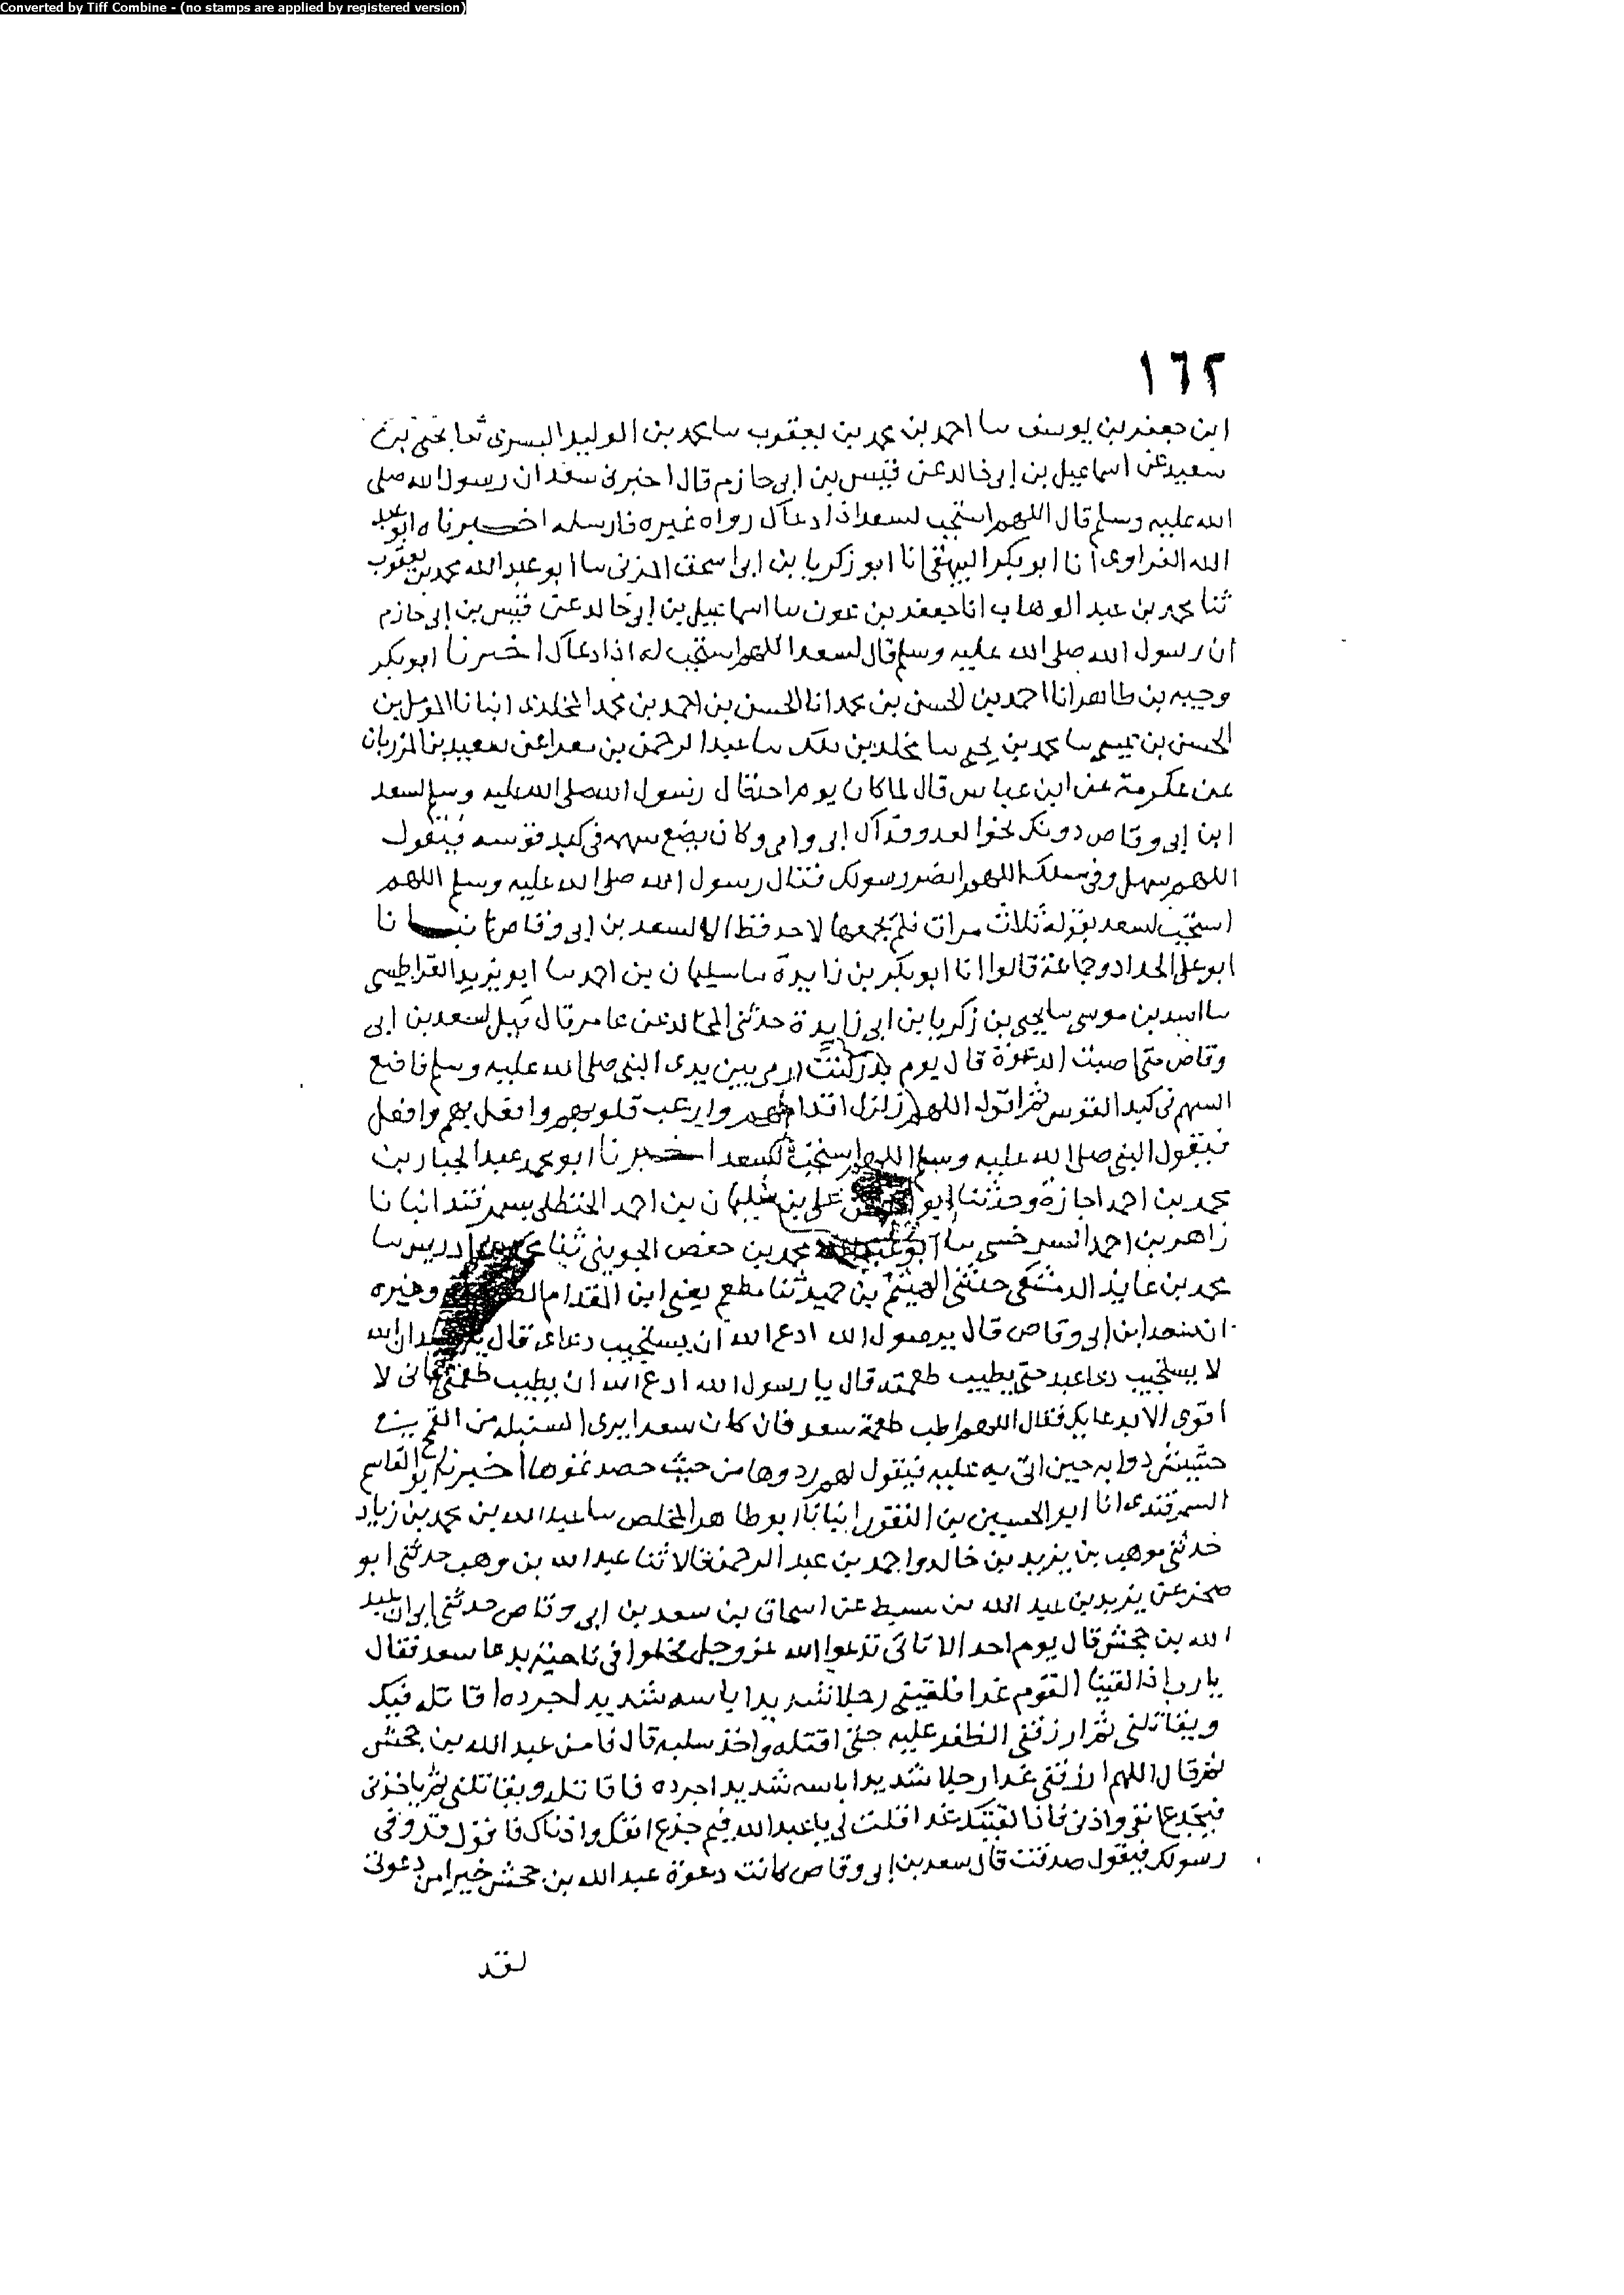 Converted by Tiff Combine - (no stamps are applied by registered version)
١٦٢
ابن جعفر بن يوسف سا احمد بن محمد بن يعقوب سا محمد بن الوليد البسرى ثنا يحيى بن
سعيد عن اسماعيل بن ابى خالد عن قيس بن ابى حازم قال اخبرنى سعد ان رسول الله صلى
الله عليه وسلم قال اللهم استجب لسعد اذا دعاك رواه غيره فارسله اخبرناه ابو عبد
الله الفراوى انا ابو بكر البيهقى انا ابو زكريا بن ابى اسحق المزنى سا ابو عبد الله محمد بن يعقوب
ثنا محمد بن عبد الوهاب انا جعفر بن عون سا اسماعيل بن ابى خالد عن قيس بن ابى حازم
ان رسول الله صلى الله عليه وسلم قال لسعد اللهم استجب له اذا دعاك اخبرنا ابو بكر
وجيه بن طاهر انا احمد بن الحسن بن محمد انا الحسن بن احمد بن محمد المخلدى انبانا المومل بن
الحسن بن عيسى سا محمد بن يحيى سا مخلد بن ملك سا عبد الرحمن بن معرا عن سعيد بن المرزبان
عن عكرمة عن ابن عباس قال لما كان يوم احد قال رسول الله صلى الله عليه وسلم لسعد
ابن ابى وقاص دونك نحوا لعدو فداك ابى وامى وكان يضع سهمه فى كبد قوسه فيقول
اللهم سهمك وفى سبيلك اللهم انصر رسولك فقال رسول الله صلى الله عليه وسلم اللهم
استجب لسعد بقوله ثلاث مرات فلم يجمعها لاحد فظ الا لسعد بن ابى وقاص انبانا
ابو على الحداد وجماعة قالوا انا ابو بكر بن زايدة سا سليمان بن احمد سا ابو يزيد القراطيسى
سا اسد بن موسى سا يحيى بن زكريا بن ابى زايدة حدثنى المجالد عن عامر قال قيل لسعد بن ابى
وقاص متى اصبت الدعوة قال يوم بدر كنت ارمى بين يدى النبى صلى الله عليه وسلم فاضع
السهم فى كبد القوس ثم اقول اللهم زلزل اقدامهم وارعب قلوبهم وافعل بهم وافعل
فيقول النبى صلى الله عليه وسلم اللهم استجب لسعد اخبرنا ابو محمد عبد الجبار بن
محمد بن احمد اجازة وحدثنا ابو على بن سليمان بن احمد الحنظلى بسمرقند انبانا
زاهر بن احمد السرخسى سا ابو محمد بن حفص الجوينى ثنا ادريس سا
محمد بن عايذ الدمشقى حدثنى الهيثم بن حميد ثنا مطعم يعنى ابن المقدام وغيره
ان سعد ابن ابى وقاص قال يرسول الله ادع الله ان يستجيب دعاى قال ان الله
لا يستجيب دعا عبد حتى يطيب طعمته قال يا رسول الله ادع الله ان يطيب طعمتى فانى لا
اقوى الا بدعايك فقال اللهم اطب طعمة سعد فان كان سعد ليرى السنبلة من القمح فى
دوابه حين اتى به عليه فيقول لهم ردوها من حيث حصدتموها اخبرنا ابو القاسم
السمرقندى انا ابو الحسين بن النقور انبانا ابو طاهر المخلص سا عبد الله بن محمد بن زياد
حدثنى موهب بن يزيد بن خالد واحمد بن عبد الرحمن قالا ثنا عبد الله بن وهب حدثنى ابو
صخر عن يزيد بن عبد الله بن قسيط عن اسحاق بن سعد بن ابى وقاص حدثنى ابى ان عبد
الله بن جحش قال يوم احد الا تاتى تدعوا الله عز وجل فخلوا فى ناحية فدعا سعد فقال
يا رب اذا لقينا القوم غدا فلقينى رجلا شديدا باسه شديد احرده اقاتله فيك
ويقاتلنى ثم ارزقنى الظفر عليه حتى اقتله واخذ سلبه قال فامن عبد الله بن جحش
ثم قال اللهم ارزقنى غدا رجلا شديدا باسه شديد احرده فاقاتله ويقاتلنى ثم ياخذنى
فيجدع انفى واذنى فاذا لقيتك غدا قلت لى يا عبد الله فيم جذع انفك واذناك فاقول فيك وفى
رسولك فيقول صدقت قال سعد بن ابى وقاص كانت دعوة عبد الله بن جحش خيرا من دعوتى
لقد